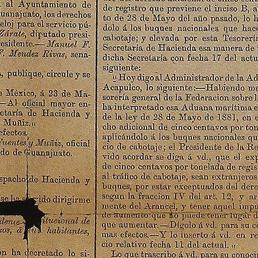 al Ayuntamiento de
Guanajuato, los derechos
eloj para el servicio pú-
Zárate, diputado presi-
residente.—Manuel F.
F. Mendez Rivas, sena-
, publique, circule y se
e México, á 23 de Ma-
—Al oficial mayor en-
retaría de Hacienda y
Muñiz.„
efectos.
Fuentes y Muñiz, oficial
do de Guanajuato.
espacho de Hacienda y
se ha servido dirigirme
stitucional de
habitantes,
on ha decretado lo si-
de registro que previene el inciso B, a
to de 28 de Mayo del año pasado, lo h
dolo á los buques nacionales que hac
cabotaje; y elevada por esta Tesorerí
Secretaría de Hacienda esa manera de
dicha Secretaría con fecha 17 del actua
siguiente:
„Hoy digo al Administrador de la Ad
Acapulco, lo siguiente:—Habiendo me
sorería general de la Federacion sobre l
ha interpretado esa Aduana marítima e
de la ley de 28 de Mayo de 1881, en c
cho adicional de cinco centavos por ton
aplicándolo á los buques nacionales qu
cio de cabotaje; el Presidente de la Re
vido acordar se diga á vd., que el exp
de cinco centavos por tonelada de regist
al tráfico de cabotaje, sean extranjeros
buques, por estar exceptuados del derec
segun la fraccion IV del art. 12, y ar
mente del Arancel, y tener aquel impu
de aumento que no puede tener lugar d
que aumentar.—Dígolo á vd. para su co
mas efectos.—Y lo inserto á vd. en re
cio relativo fecha 11 del actual. „
Lo que trascribo á vd. para su conoci